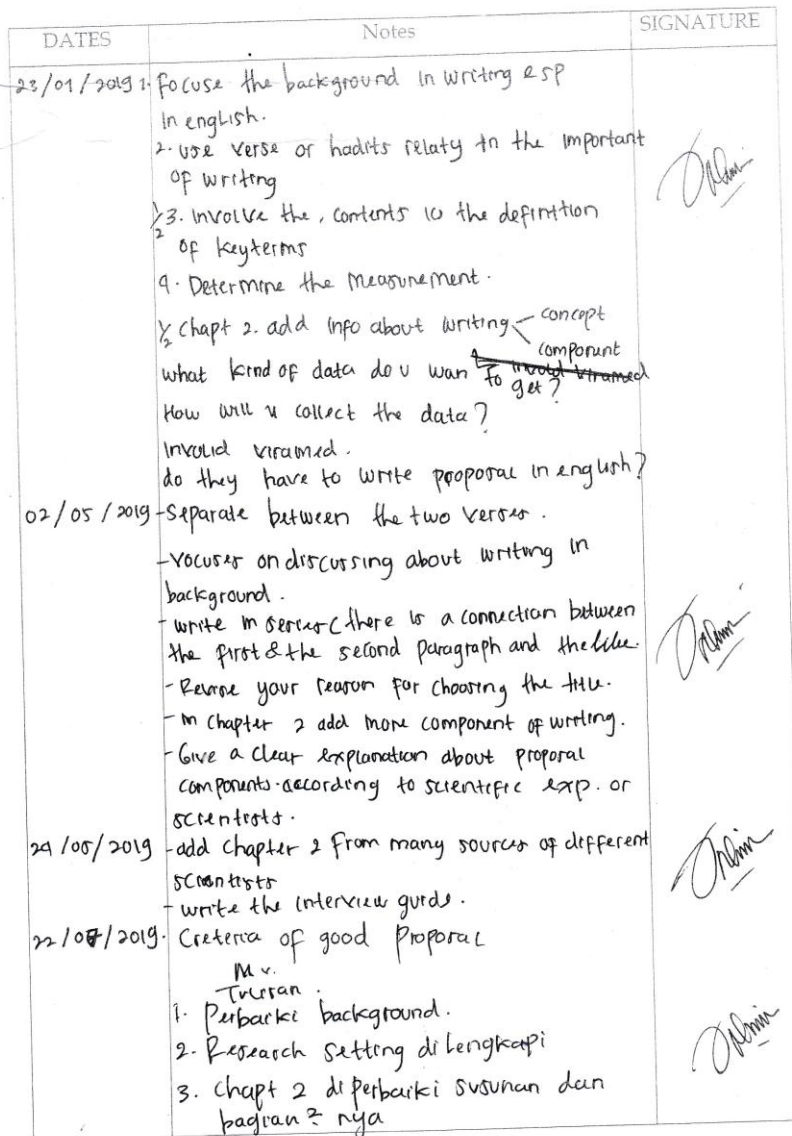 DATES Notes SIGNATURE
23/01/2019 1. Focuse the background in writing esp
in english.
2. use verse or hadits relaty to the important
of writing
1/2 3. Involve the, contents to the definition
of keyterms
4. Determine the Measurement.
1/2 Chapt 2. add info about writing concept
component
what kind of data do u wan to get?
How will u collect the data?
Involid viramed.
do they have to write proposal in english?
02/05/2019 - Separate between the two verses.
- Vocuses on discussing about writing in
background.
- write in series (there is a connection between
the first & the second paragraph and the like.
- Revise your reason for choosing the title.
- in Chapter 2 add more component of writing.
- Give a clear explanation about proposal
components according to scientific exp. or
scientists.
29/05/2019 - add chapter 2 from many sources of different
scientists
- write the interview guide.
22/07/2019. Creteria of good Proposal
1. Perbaiki background.
2. Research setting di lengkapi
3. Chapt 2 di perbaiki susunan dan
bagian2 nya